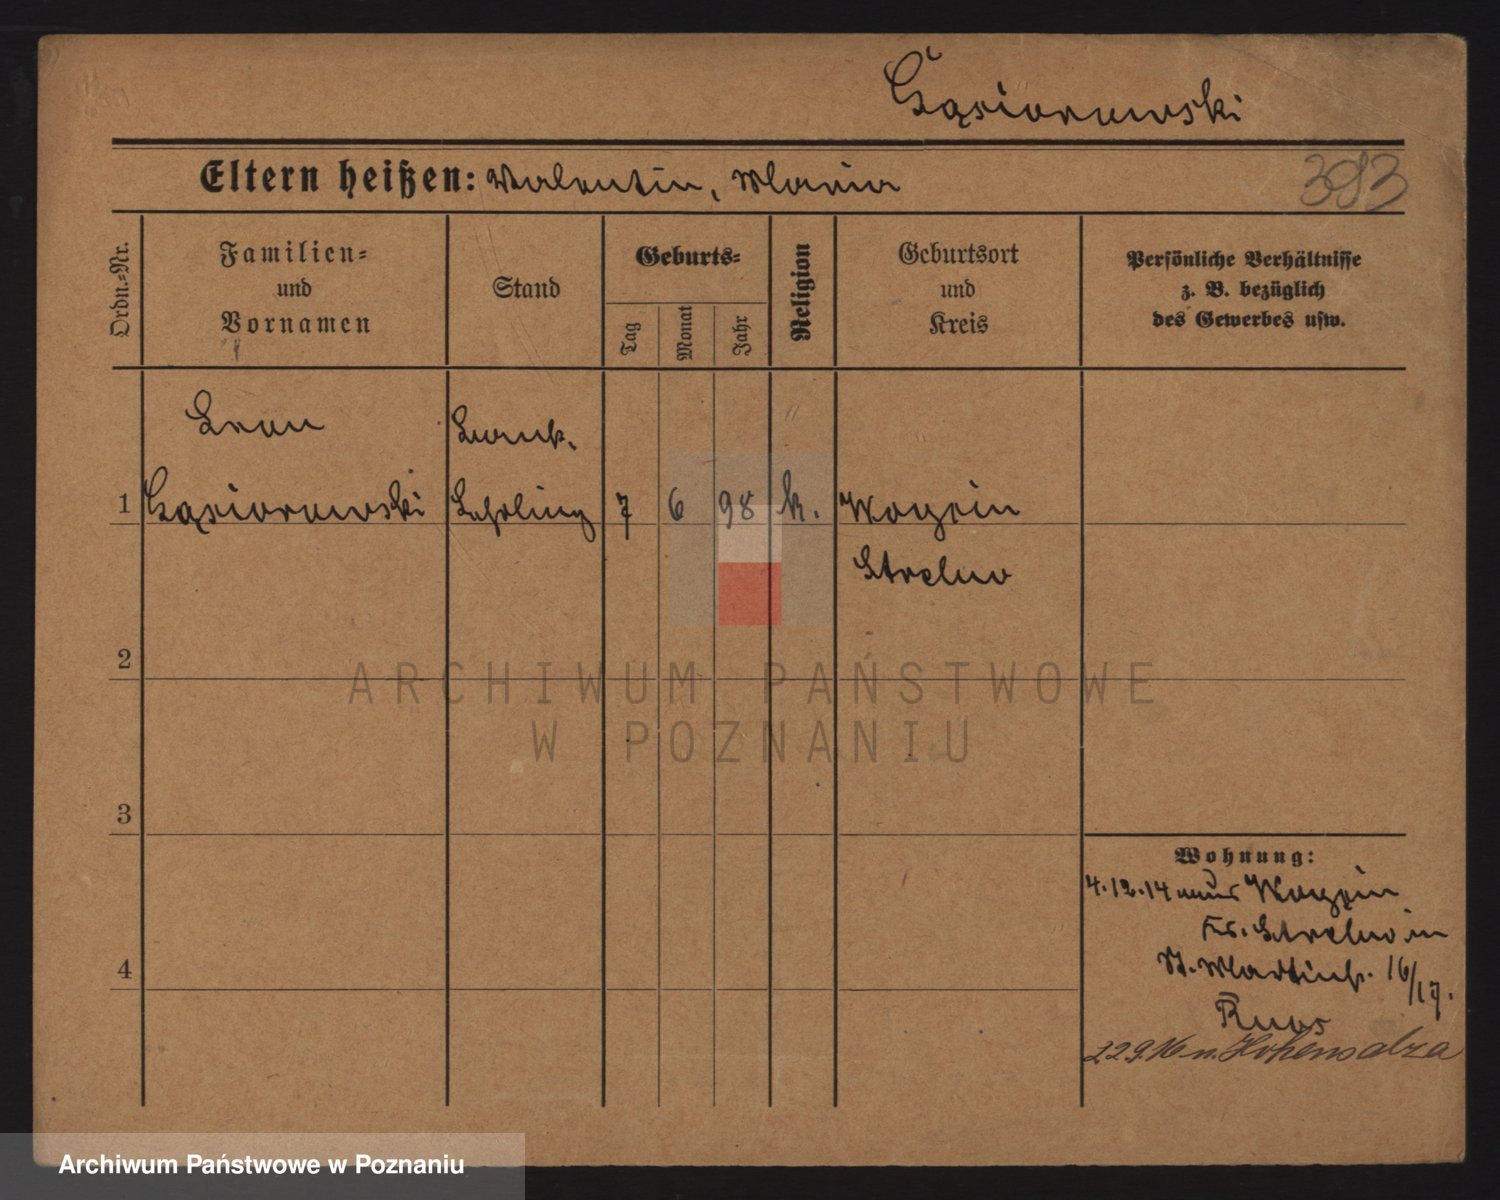 Gąsiorowski
Eltern heißen: Valentin, Maria
383
Ordn.-Nr.
Familien-
und
Vornamen
Stand
Geburts-
Tag
Monat
Jahr
Religion
Geburtsort
und
Kreis
Persönliche Verhältnisse
z. B. bezüglich
des Gewerbes usw.
Leon
Landw.
1 Gąsiorowski Lehrling 7 6 98 k. Wozin
Strelno
2
ARCHIWUM PAŃSTWOWE
W POZNANIU
3
Wohnung:
4.12.14 aus Wozin
Kr. Strelno in
St. Martinstr. 16/17.
4
22.9.16 n. Hohensalza
Archiwum Państwowe w Poznaniu